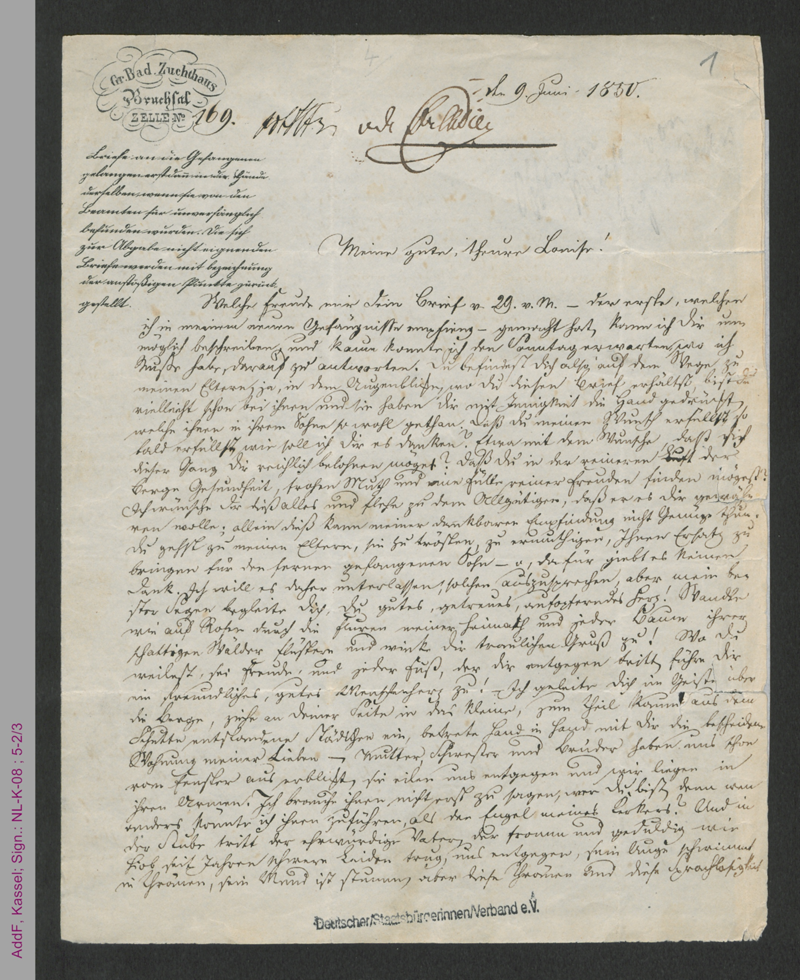 Gr. Bad. Zuchthaus
Bruchsal
ZELLE No 169.
den 9. Juni 1850.
1
Briefe an die Gefangenen
gelangen erst dann in die Hände
derselben, wenn sie von den
Beamten für unverfänglich
befunden wurden. Die sich
zur Abgabe nicht eignenden
Briefe werden mit Bezeichnung
der anstößigen Punkte zurück
gestellt.
Meine gute, theure Louise!
Welche Freude mir dein Brief v. 29. v. M. – der erste, welchen
ich in meinem neuen Gefängnisse empfing – gemacht hat, kann ich dir un
möglich beschreiben, und kaum konnte ich den Sonntag erwarten, wo ich
Muße habe, darauf zu antworten. Du befindest dich also auf dem Wege zu
meinen Eltern, ja, in dem Augenblicke, wo du diesen Brief erhältst, bist du
vielleicht schon bei ihnen und sie haben dir mit Innigkeit die Hand gedrückt,
welche ihnen in ihrem Sohne so wohl gethan. Daß du meinen Wunsch erfüllst, so
bald erfüllst, wie soll ich dir es danken? Etwa mit dem Wunsche, daß sich
dieser Gang dir reichlich belohnen möge? Daß du in der reineren Luft der
Berge Gesundheit, frohen Muth und eine Fülle reiner Freuden finden mögest?
Ich wünsche dir dieß alles und flehe zu dem Allgütigen, daß er es dir gewäh
ren wolle; allein dieß kann meiner dankbaren Empfindung nicht Genüge thun.
Du gehst zu meinen Eltern, sie zu trösten, zu ermuthigen, Ihnen Ersatz zu
bringen für den fernen gefangenen Sohn – o, dafür giebt es keinen
Dank. Ich will es daher unterlassen, solchen auszusprechen, aber mein be
ster Segen begleite dich, du gutes, getreues, aufopferndes Herz! Wandle
wie auf Rosen durch die Fluren meiner Heimath und jeder Baum ihrer
schattigen Wälder flüstere und winke dir traulichen Gruß zu! Wo du
weilest, sei Freude, und jeder Fuß, der dir entgegen tritt führe dir
ein freundliches, gutes Menschenherz zu! Ich geleite dich im Geiste über
die Berge, ziehe an deiner Seite in das kleine, zum Theil kaum aus dem
Schutte entstandene Städtchen ein, betrete Hand in Hand mit dir die bescheidene
Wohnung meiner Lieben – Mutter Schwester und Bruder haben uns schon
vom Fenster aus erblickt, sie eilen uns entgegen und wir liegen in
ihren Armen. Ich brauche ihnen nicht erst zu sagen, wer du bist, denn wen
anders könnte ich ihnen zuführen, als den Engel meines Kerkers? Und in
der Stube tritt der ehrwürdige Vater, der fromm und geduldig wie
Hiob seit Jahren schwere Leiden trug, uns entgegen, sein Auge schwimmt
in Thränen, sein Mund ist stumm, aber diese Thränen und diese Sprachlosigkeit
Deutscher/Staatsbürgerinnen/Verband e.V.
AddF, Kassel; Sign.: NL-K-08 ; 5-2/3